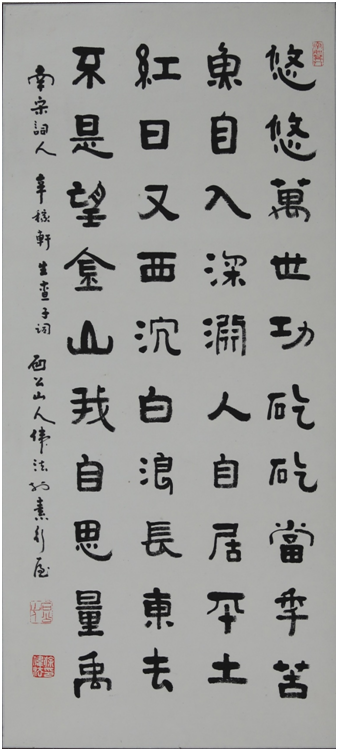 悠悠萬世功矻矻當年苦
魚自入深淵人自居平土
紅日又西沉白浪長東去
不是望金山我自思量禹
南宋詞人辛稼軒生查子词 山人